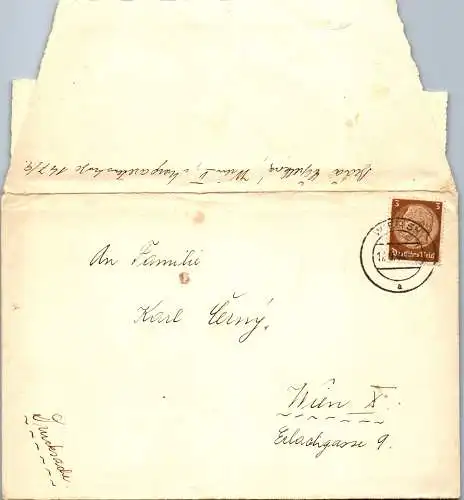 Wien V, Margaretenstraße 147/9.
3 3
Deutsches Reich
WIEN
a
An Familie
Karl Černý.
Wien X.
Erlachgasse 9.
Drucksache